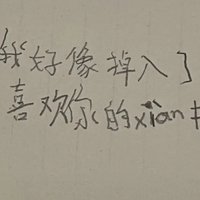 我好像掉入了
喜欢你的xian